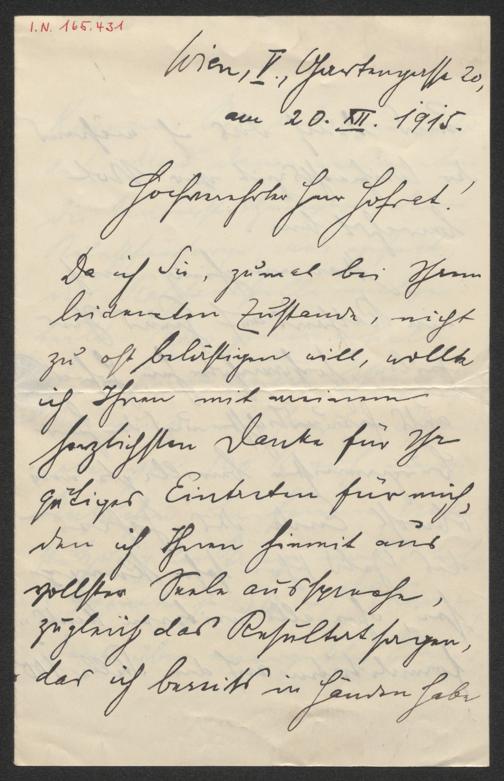 I.N. 165.431
Wien, V., Gartengasse 20,
am 20. XII. 1915.
Hochverehrter Herr Hofrat!
Da ich Sie, zumal bei Ihrem
leidenden Zustande, nicht
zu oft belästigen will, wollte
ich Ihnen mit meinem
herzlichsten Danke für Ihr
gütiges Eintreten für mich,
den ich Ihnen hiemit aus
vollster Seele ausspreche,
zugleich das Resultat sagen,
das ich bereits in Händen habe